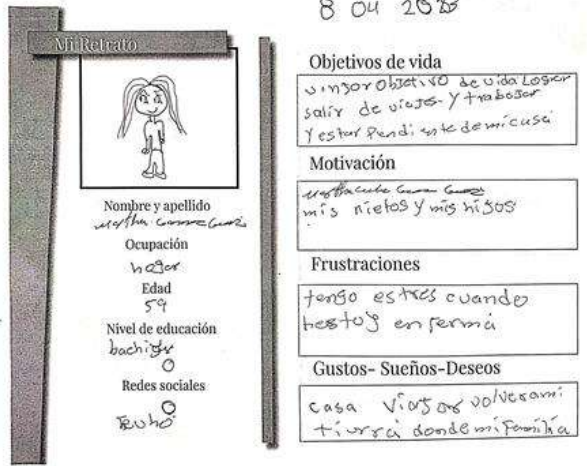 8 04 20
Mi Retrato
Nombre y apellido
Martha
Ocupación
hogar
Edad
59
Nivel de educación
bachiller
0
Redes sociales
0
Objetivos de vida
objetivo de vida Lograr
salir de viajes y trabajar
y estar Pendiente de mi casa
Motivación
mis nietos y mis hijos
Frustraciones
tengo estres cuando
hestoy enferma
Gustos- Sueños-Deseos
casa viajar volver ami
tiurra donde mi familia